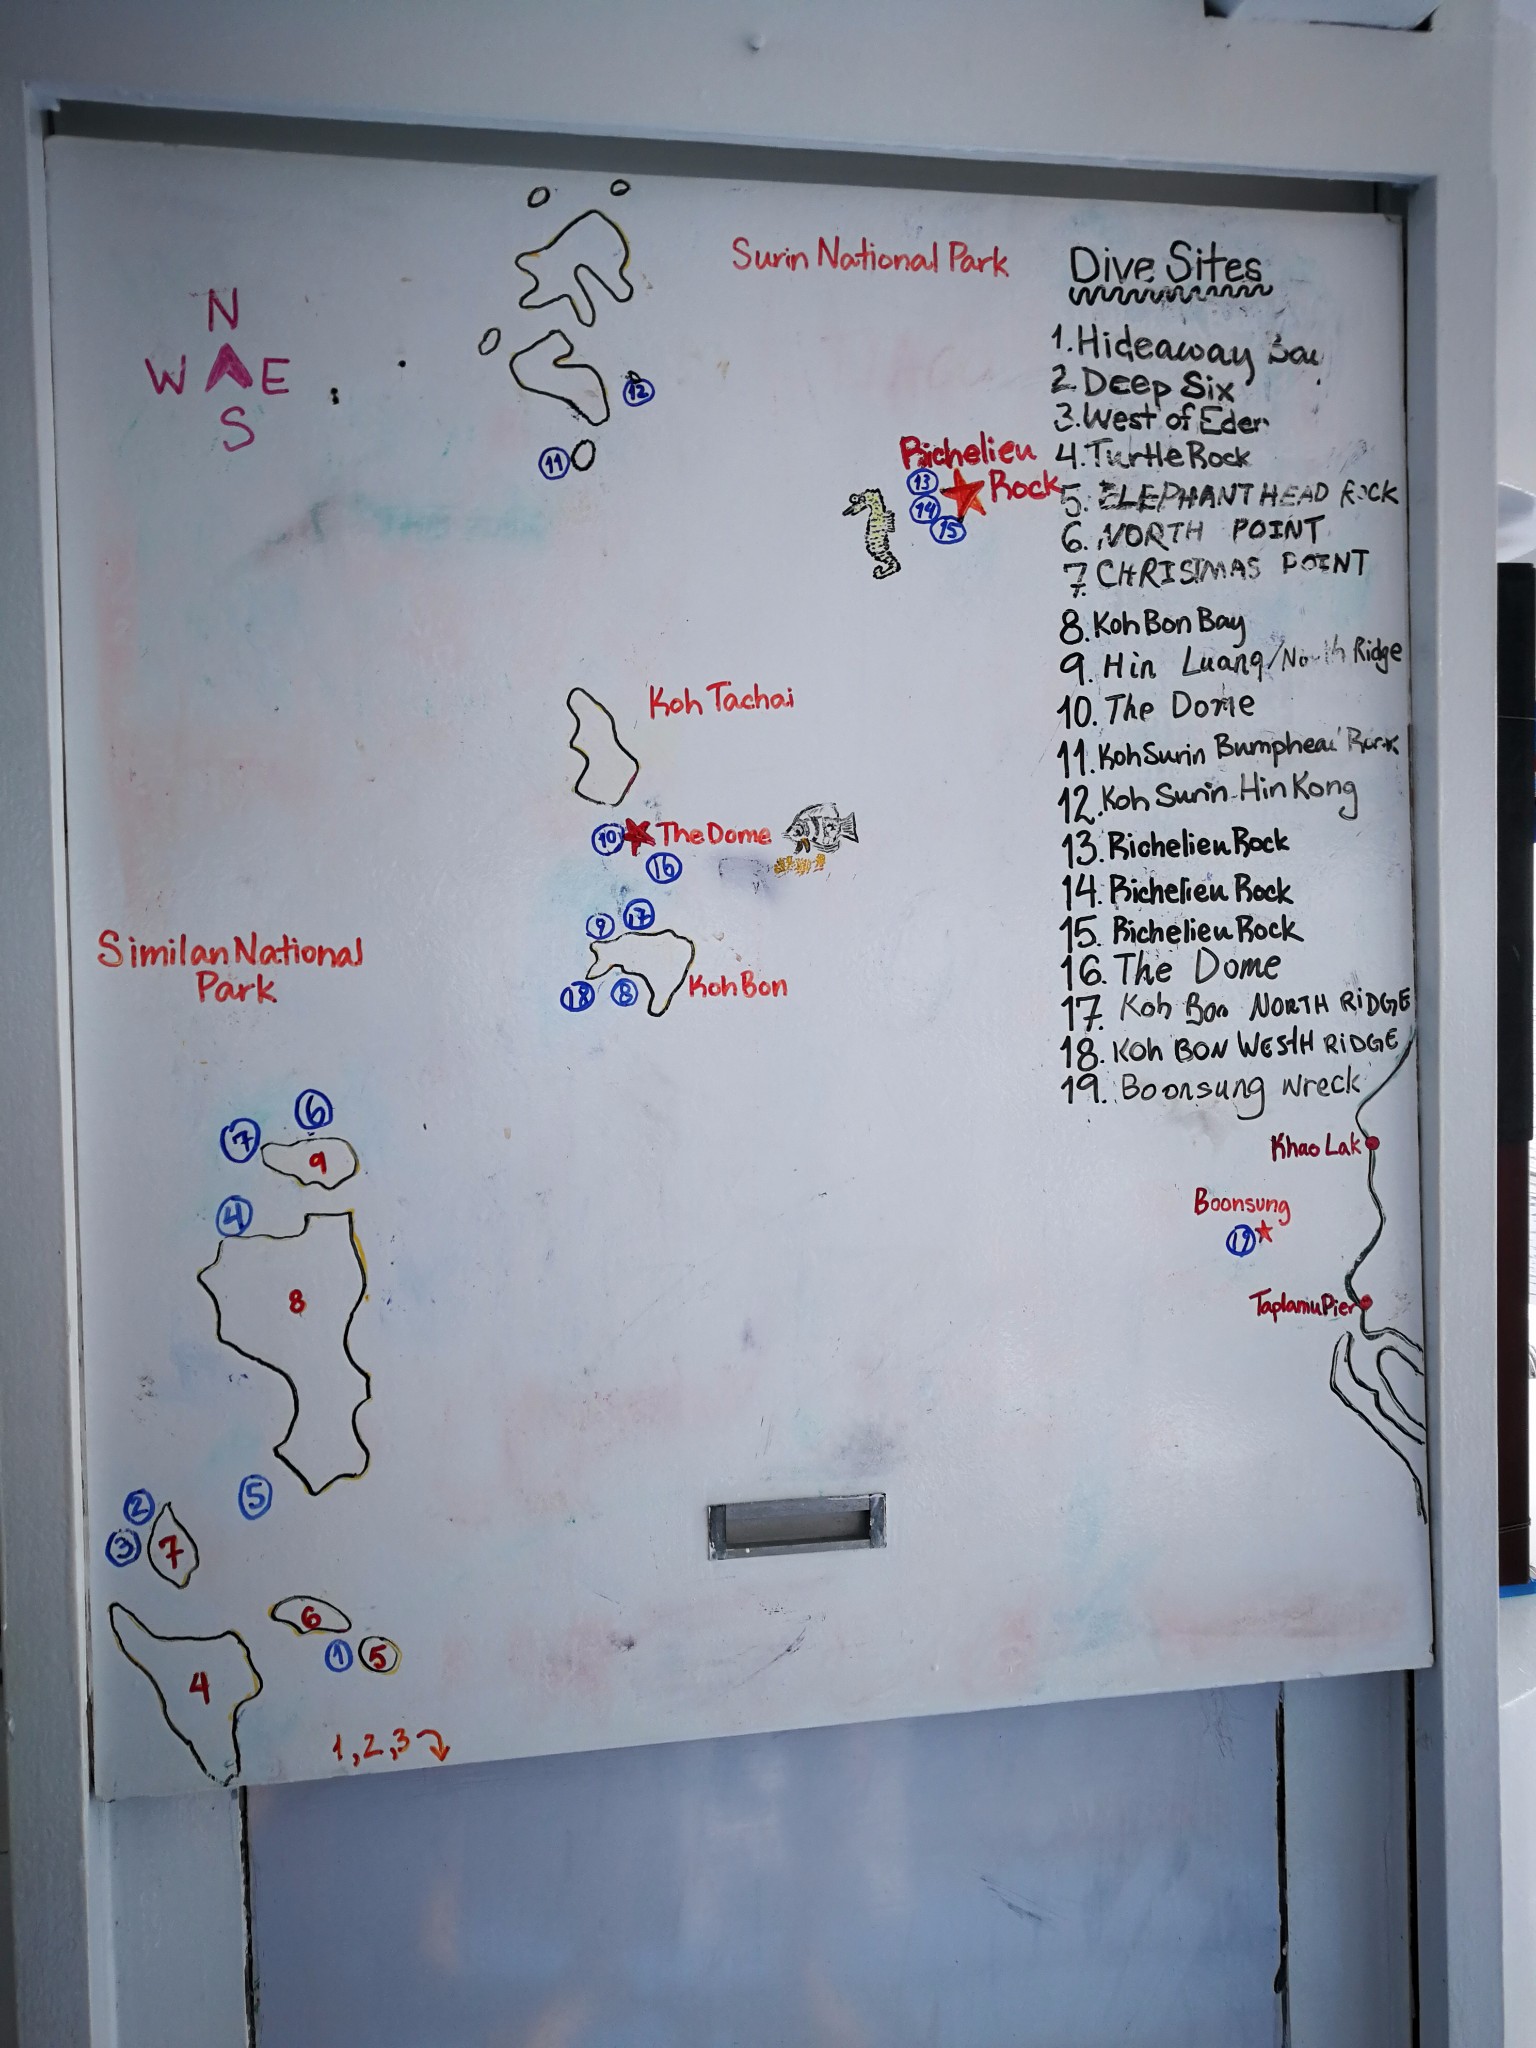 Surin National Park
N
W E
S
12
11
Richelieu
Rock
13
14
15
Koh Tachai
10 The Dome
16
9 17
18 8 Koh Bon
Similan National
Park
6
7
9
4
8
5
2
3
7
6
1 5
4
1, 2, 3
Dive Sites
1. Hideaway
2. Deep Six
3. West of Eden
4. Turtle Rock
5. ELEPHANT HEAD ROCK
6. NORTH POINT
7. CHRISTMAS POINT
8. Koh Bon Bay
9. Hin Luang/North Ridge
10. The Dome
11. Koh Surin Bumphead Rock
12. Koh Surin-Hin Kong
13. Richelieu Rock
14. Richelieu Rock
15. Richelieu Rock
16. The Dome
17. Koh Bon NORTH RiDGE
18. Koh BON WESTH RiDGE
19. Boonsung wreck
Khao Lak
Boonsung
19
Taplamu Pier